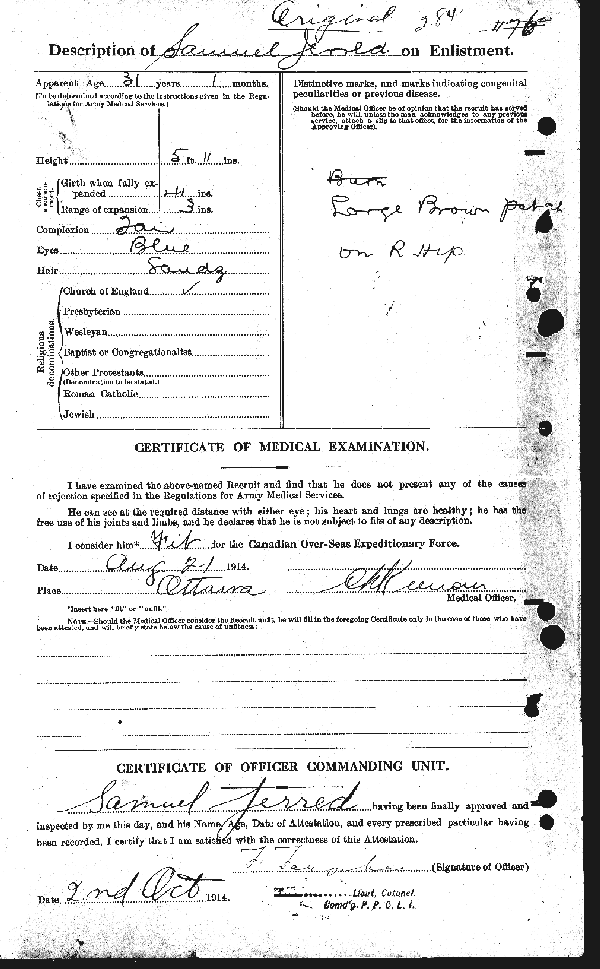 Original 284 #76
Description of Samuel Jerold on Enlistment.
Apparent Age 31 years 1 months.
(To be determined according to the instructions given in the Regulations for Army Medical Services.)
Height 5 ft. 11 ins.
Chest measurement.
Girth when fully expanded ins.
Range of expansion 3 ins.
Complexion
Eyes Blue
Hair Sandy
Religious denominations.
Church of England ✓
Presbyterian
Wesleyan
Baptist or Congregationalist
Other Protestants
(Denomination to be stated.)
Roman Catholic
Jewish
Distinctive marks, and marks indicating congenital
peculiarities or previous disease.
(Should the Medical Officer be of opinion that the recruit has served
before, he will, unless the man acknowledges to any previous
service, attach a slip to that effect, for the information of the
Approving Officer).
Large Brown patch
on R Hip
CERTIFICATE OF MEDICAL EXAMINATION.
I have examined the above-named Recruit and find that he does not present any of the causes
of rejection specified in the Regulations for Army Medical Services.
He can see at the required distance with either eye; his heart and lungs are healthy; he has the
free use of his joints and limbs, and he declares that he is not subject to fits of any description.
I consider him* Fit for the Canadian Over-Seas Expeditionary Force.
Date Aug 21 1914.
Place Ottawa
Medical Officer.
*Insert here "fit" or "unfit."
NOTE.—Should the Medical Officer consider the Recruit unfit, he will fill in the foregoing Certificate only in the case of those who have
been attested, and will briefly state below the cause of unfitness:
CERTIFICATE OF OFFICER COMMANDING UNIT.
Samuel Jerred having been finally approved and
inspected by me this day, and his Name, Age, Date of Attestation, and every prescribed particular having
been recorded, I certify that I am satisfied with the correctness of this Attestation.
(Signature of Officer)
Date 2nd Oct 1914.
Lieut. Colonel.
Comd'g. P. P. C. L. I.